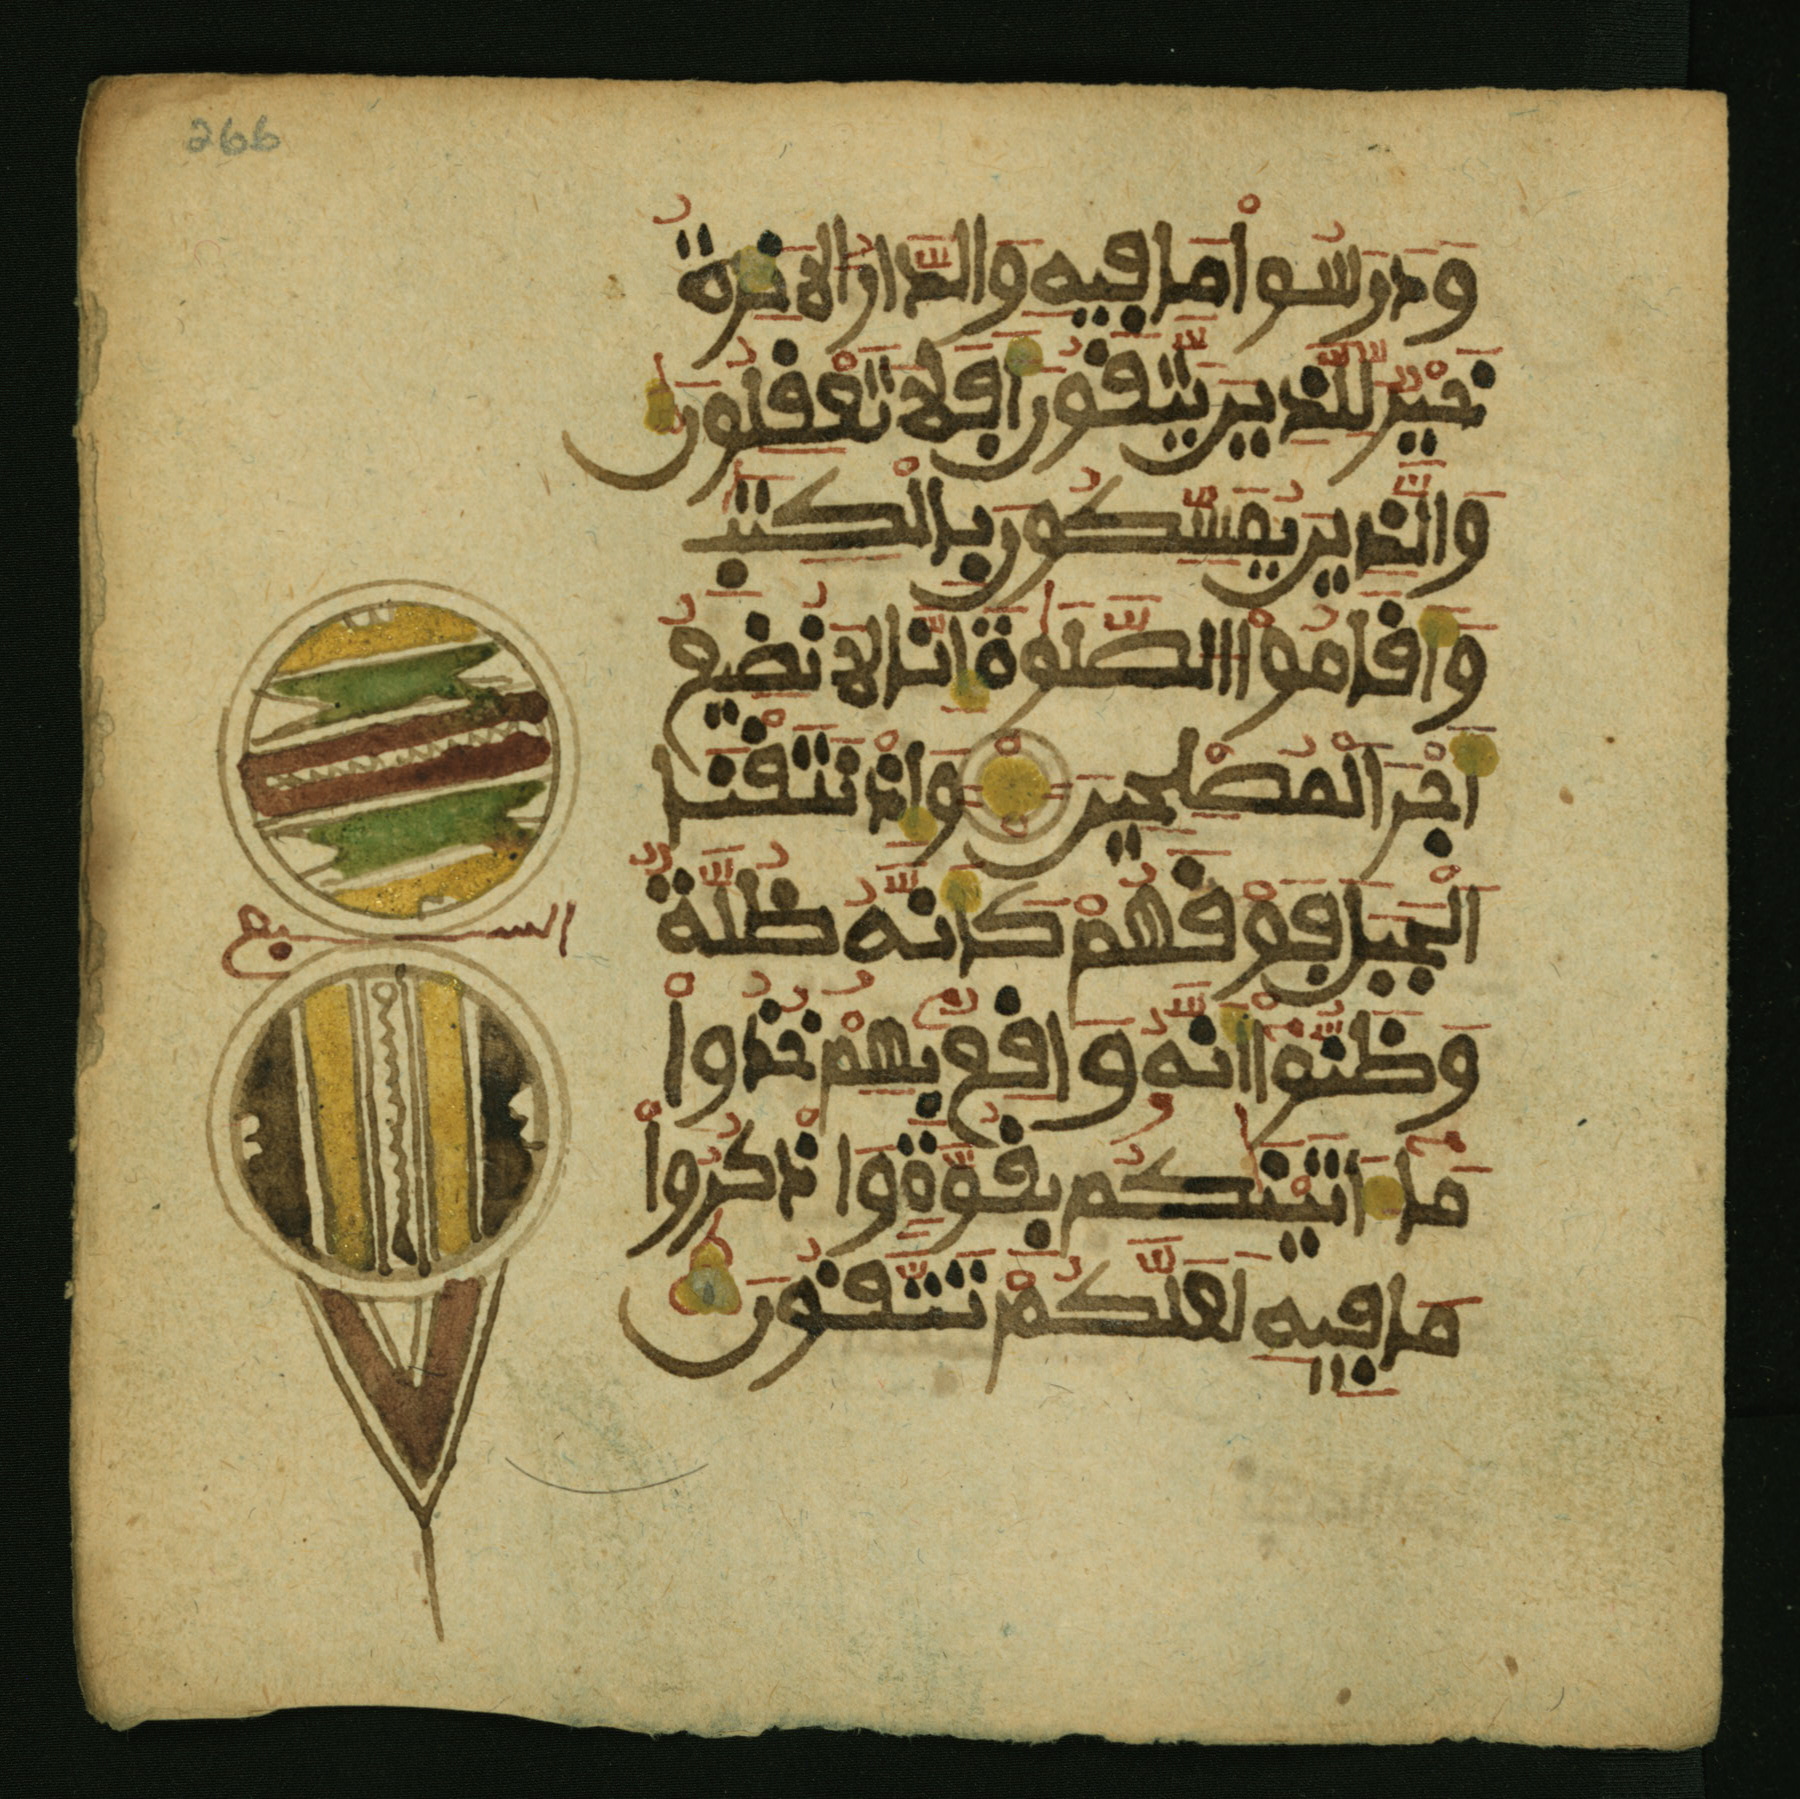 266
وَدَرَسُواْ مَا فِيهِ وَالدَّارُ الَاخِرَةُ
خَيْرٌ لِّلذِينَ يَتَّقُونَ أَفَلَا تَعْقِلُونَ
وَالذِينَ يُمَسِّكُونَ بِالْكِتَٰبِ
وَأَقَامُواْ الصَّلَوٰةَ إِنَّا لَا نُضِيعُ
أَجْرَ الْمُصْلِحِينَ وَإِذْ نَتَقْنَا
الْجَبَلَ فَوْقَهُمْ كَأَنَّهُ ظُلَّةٌ
وَظَنُّواْ أَنَّهُ وَاقِعٌ بِهِمْ خُذُواْ
مَا ءَاتَيْنَٰكُم بِقُوَّةٍ وَاذْكُرُواْ
مَا فِيهِ لَعَلَّكُمْ تَتَّقُونَ
السبع